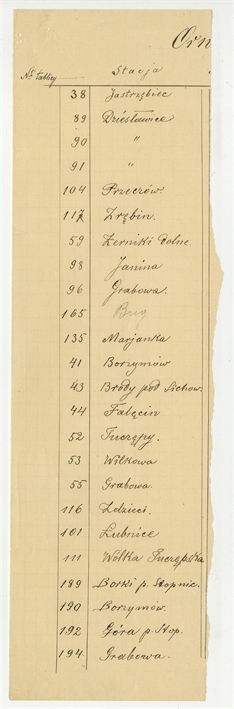 Orn
Nr tablicy Stacja
38 Jastrzębiec
89 Dziesławice
90 "
91 "
104 Przeczów.
117 Zrębin.
59 Żerniki Dolne.
98 Janina
96 Grabowa.
165 Bug
135 Marjanka
41 Borzymów
43 Brody pod Sichow.
44 Falęcin
52 Tuczępy.
53 Wilkowa
55 Grabowa.
116 Zdzieci.
101 Łubnice
111 Wólka Tuczępska
189 Borki p. Stopnic.
190 Borzymów.
192 Góra p. Stop.
194 Grabowa.